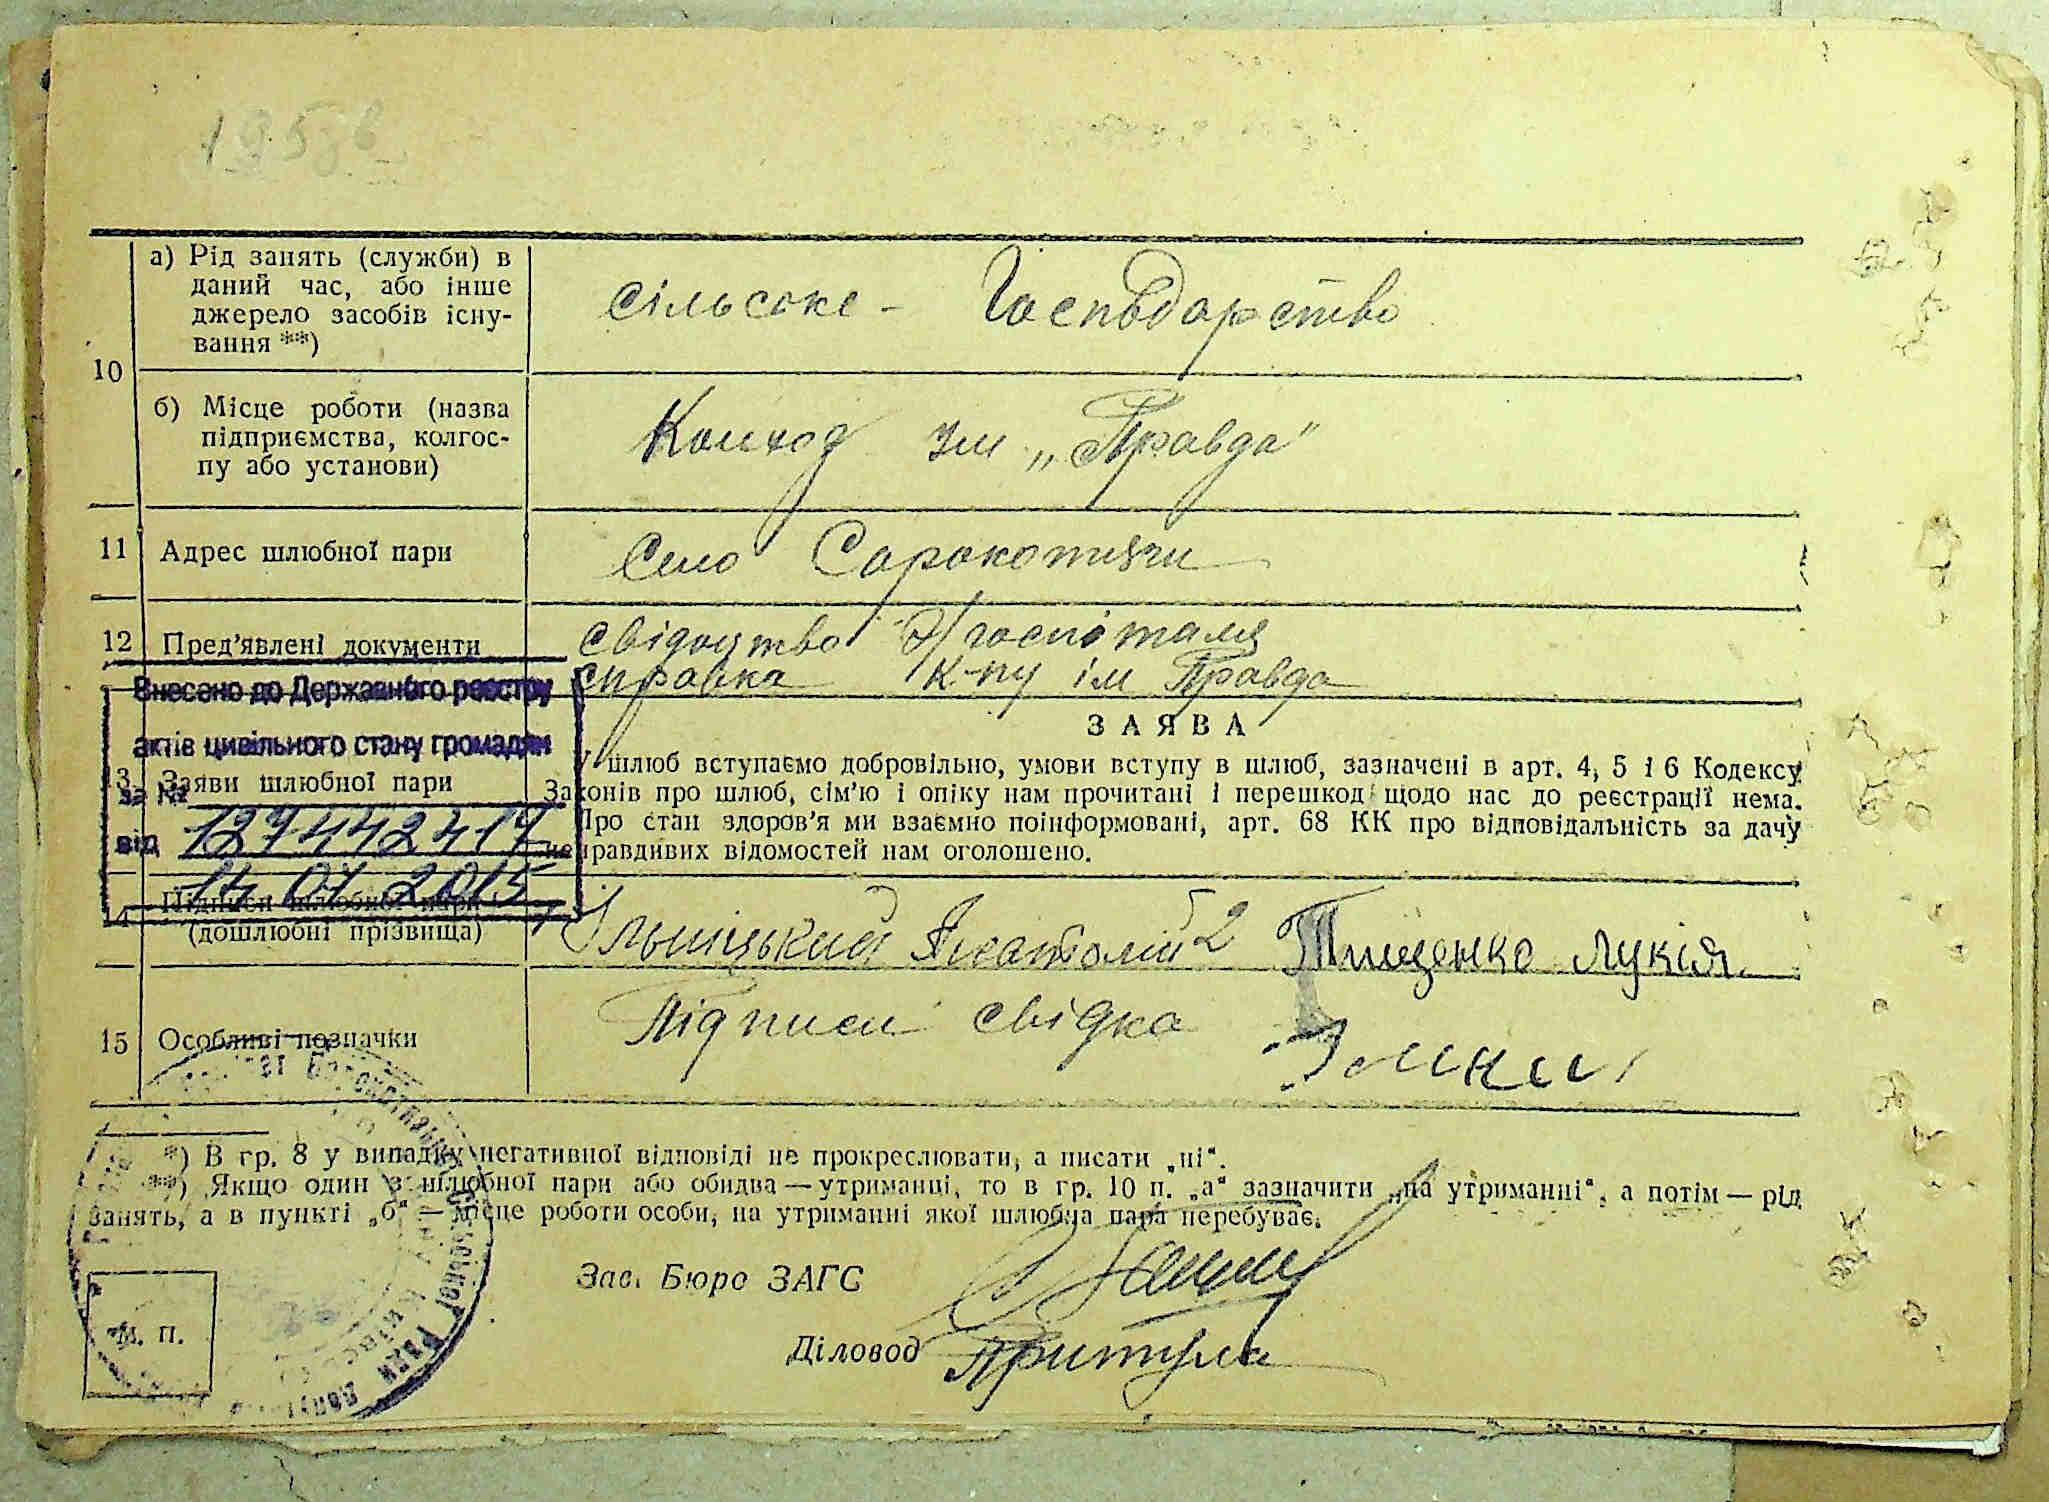 а) Рід занять (служби) в
даний час, або інше
джерело засобів існу-
вання **)
сільське - Господарство
10
б) Місце роботи (назва
підприємства, колгос-
пу або установи)
Колгод ім „Правда"
11 Адрес шлюбної пари
Село Сорокотяги
12 Пред'явлені документи
свідоцтво з госпіталя
справка к-пу ім Правда
Внесено до Державного реєстру
актів цивільного стану громадян
за №
127442417
від
14 07 2015
13 Заяви шлюбної пари
ЗАЯВА
У шлюб вступаємо добровільно, умови вступу в шлюб, зазначені в арт. 4, 5 і 6 Кодексу
Законів про шлюб, сім'ю і опіку нам прочитані і перешкод щодо нас до реєстрації нема.
Про стан здоров'я ми взаємно поінформовані, арт. 68 КК про відповідальність за дачу
неправдивих відомостей нам оголошено.
14 Підписи шлюбної пари
(дошлюбні прізвища)
1 Ільницький Анатолій 2 Тищенко Лукія
15 Особливі позначки
Підписи свідка
*) В гр. 8 у випадку негативної відповіді не прокреслювати, а писати „ні“.
**) Якщо один з шлюбної пари або обидва — утриманці, то в гр. 10 п. „а“ зазначити „на утриманні“, а потім — рід
занять, а в пункті „б“ — місце роботи особи, на утриманні якої шлюбна пара перебуває.
Зав. Бюро ЗАГС
Діловод Притула
М. П.